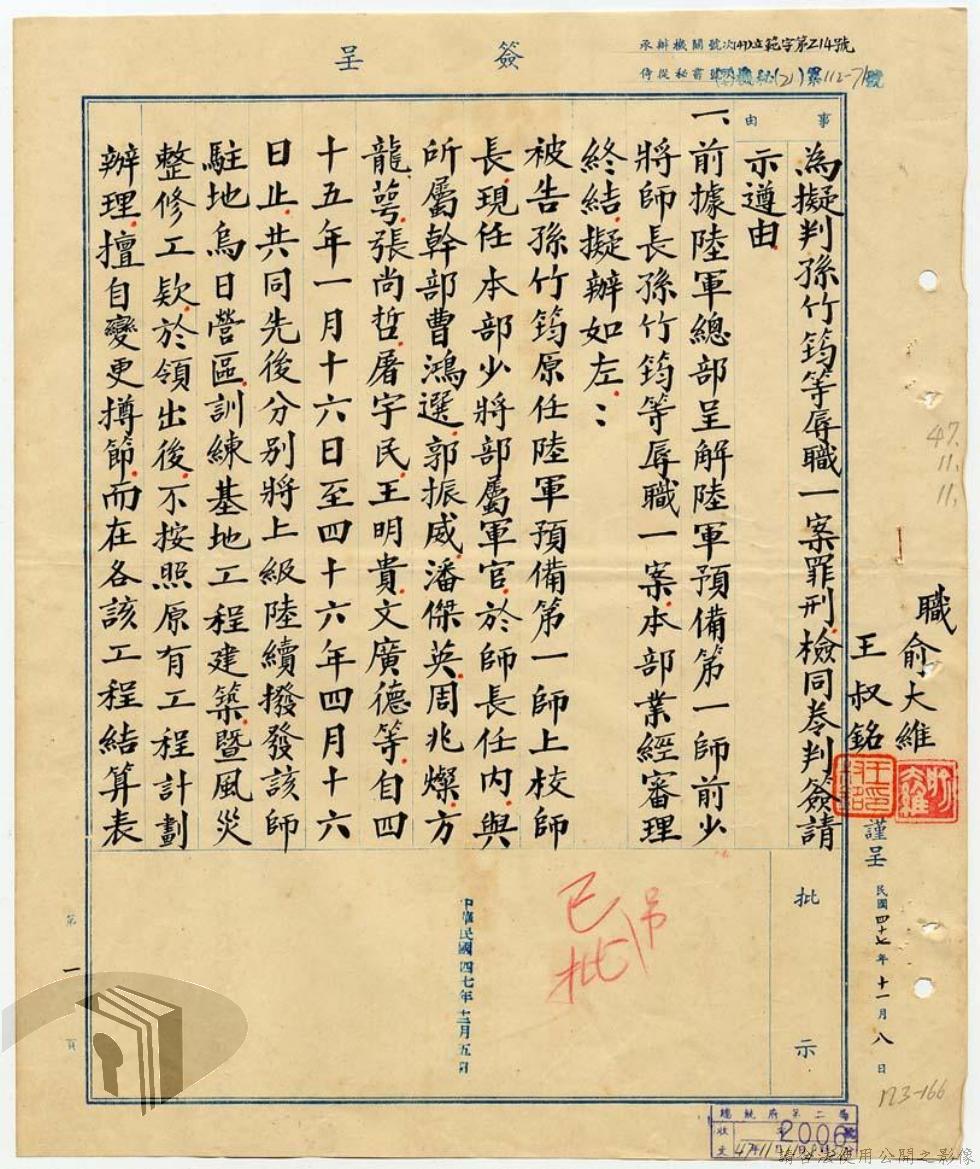 簽呈
承辦機關號次(47)立範字第214號
侍從秘書
事由
為擬判孫竹筠等辱職一案罪刑檢同卷判簽請
示遵由
一、前據陸軍總部呈解陸軍預備第一師前少
將師長孫竹筠等辱職一案本部業經審理
終結擬辦如左：
被告孫竹筠原任陸軍預備第一師上校師
長現任本部少將部屬軍官於師長任內與
所屬幹部曹鴻選郭振威潘傑英周兆燦方
龍萼張尚哲屠宇民王明貴文廣德等自四
十五年一月十六日至四十六年四月十六
日止共同先後分別將上級陸續撥發該師
駐地烏日營區訓練基地工程建築暨風災
整修工款於領出後不按照原有工程計劃
辦理擅自變更撙節而在各該工程結算表
職俞大維
王叔銘
謹呈
民國四十七年十一月八日
47.
11.
11.
批示
已批
中華民國四七年十二月五日
第一頁
123-166
總統府第二局
收文
2006號
請合法使用公開之影像